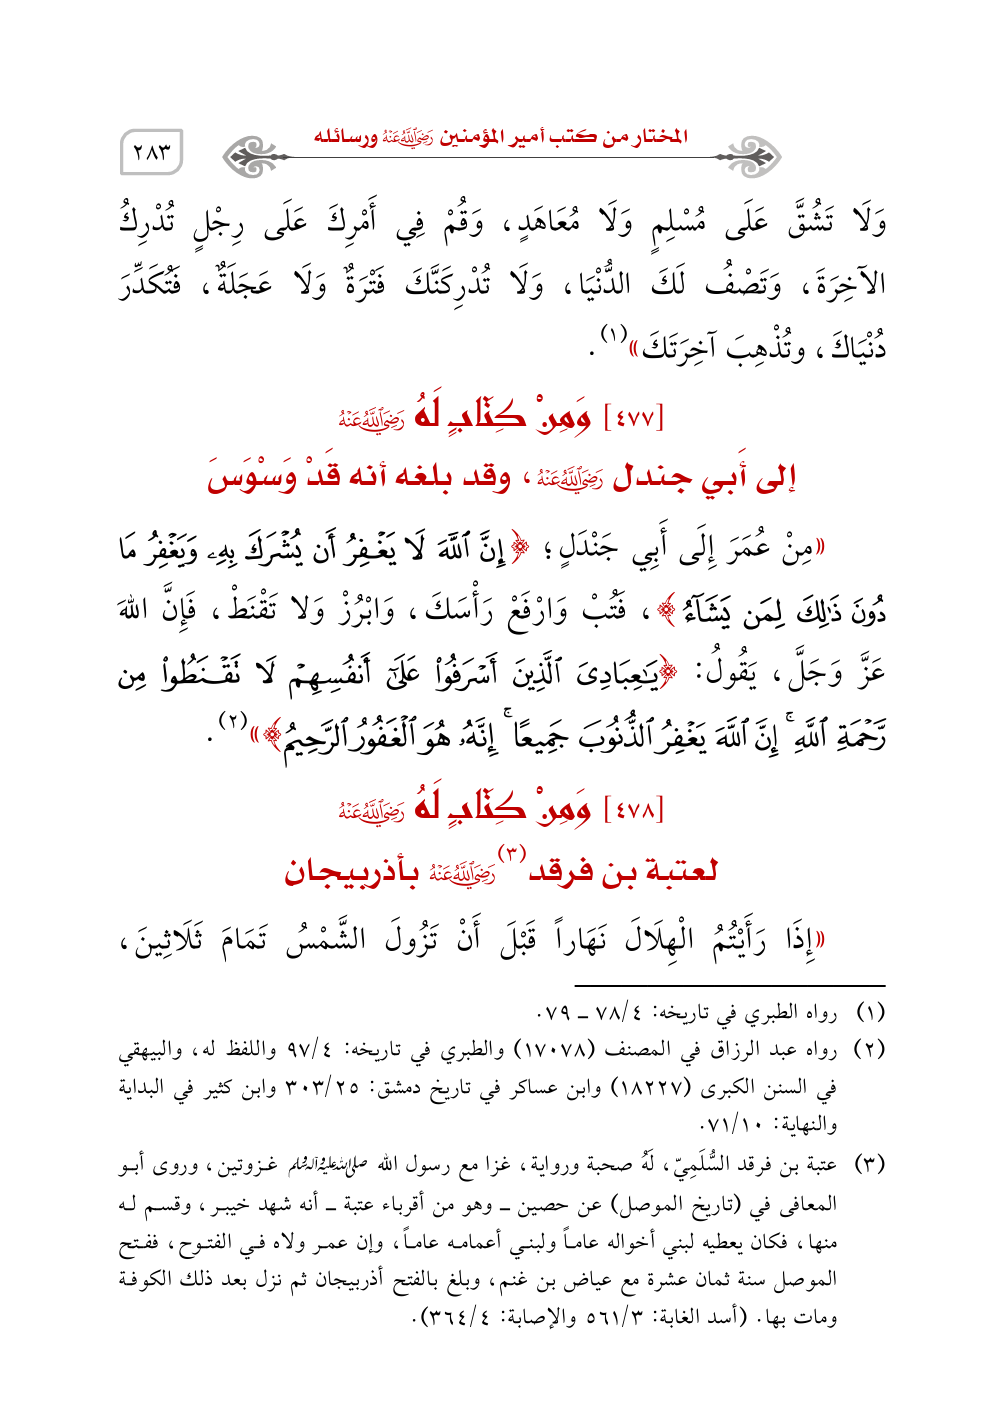 المختار من كتب أمير المؤمنين رَضِيَ ٱللَّهُ عَنْهُ ورسائله
٢٨٣
وَلَا تَشُقَّ عَلَى مُسْلِمٍ وَلَا مُعَاهَدٍ، وَقُمْ فِي أَمْرِكَ عَلَى رِجْلٍ تُدْرِكُ
الآخِرَةَ، وَتَصْفُ لَكَ الدُّنْيَا، وَلَا تُدْرِكَنَّكَ فَتْرَةٌ وَلَا عَجَلَةٌ، فَتُكَدِّرَ
دُنْيَاكَ، وتُذْهِبَ آخِرَتَكَ»(١).
[٤٧٧] وَمِنْ كِتَابٍ لَهُ رَضِيَ ٱللَّهُ عَنْهُ
إلى أَبي جندل رَضِيَ ٱللَّهُ عَنْهُ، وقد بلغه أنه قَدْ وَسْوَسَ
«مِنْ عُمَرَ إِلَى أَبِي جَنْدَلٍ؛ ﴿إِنَّ ٱللَّهَ لَا يَغْفِرُ أَن يُشْرَكَ بِهِۦ وَيَغْفِرُ مَا
دُونَ ذَٰلِكَ لِمَن يَشَآءُ﴾، فَتُبْ وَارْفَعْ رَأْسَكَ، وَابْرُزْ وَلا تَقْنَطْ، فَإِنَّ اللهَ
عَزَّ وَجَلَّ، يَقُولُ: ﴿يَٰعِبَادِىَ ٱلَّذِينَ أَسْرَفُوا۟ عَلَىٰٓ أَنفُسِهِمْ لَا تَقْنَطُوا۟ مِن
رَّحْمَةِ ٱللَّهِ ۚ إِنَّ ٱللَّهَ يَغْفِرُ ٱلذُّنُوبَ جَمِيعًا ۚ إِنَّهُۥ هُوَ ٱلْغَفُورُ ٱلرَّحِيمُ﴾»(٢).
[٤٧٨] وَمِنْ كِتَابٍ لَهُ رَضِيَ ٱللَّهُ عَنْهُ
لعتبة بن فرقد(٣) رَضِيَ ٱللَّهُ عَنْهُ بأذربيجان
«إِذَا رَأَيْتُمُ الْهِلَالَ نَهَاراً قَبْلَ أَنْ تَزُولَ الشَّمْسُ تَمَامَ ثَلَاثِينَ،
(١) رواه الطبري في تاريخه: ٧٨/٤ ـ ٧٩.
(٢) رواه عبد الرزاق في المصنف (١٧٠٧٨) والطبري في تاريخه: ٩٧/٤ واللفظ له، والبيهقي
في السنن الكبرى (١٨٢٢٧) وابن عساكر في تاريخ دمشق: ٣٠٣/٢٥ وابن كثير في البداية
والنهاية: ٧١/١٠.
(٣) عتبة بن فرقد السُّلَمِيّ، لَهُ صحبة ورواية، غزا مع رسول الله صلى الله عليه وآله وسلم غـزوتين، وروى أبـو
المعافى في (تاريخ الموصل) عن حصين ـ وهو من أقرباء عتبة ـ أنه شهد خيبـر، وقسـم لـه
منها، فكان يعطيه لبني أخواله عامـاً ولبنـي أعمامـه عامـاً، وإن عمـر ولاه فـي الفتـوح، ففـتح
الموصل سنة ثمان عشرة مع عياض بن غنم، وبلغ بالفتح أذربيجان ثم نزل بعد ذلك الكوفـة
ومات بها. (أسد الغابة: ٥٦١/٣ والإصابة: ٣٦٤/٤).